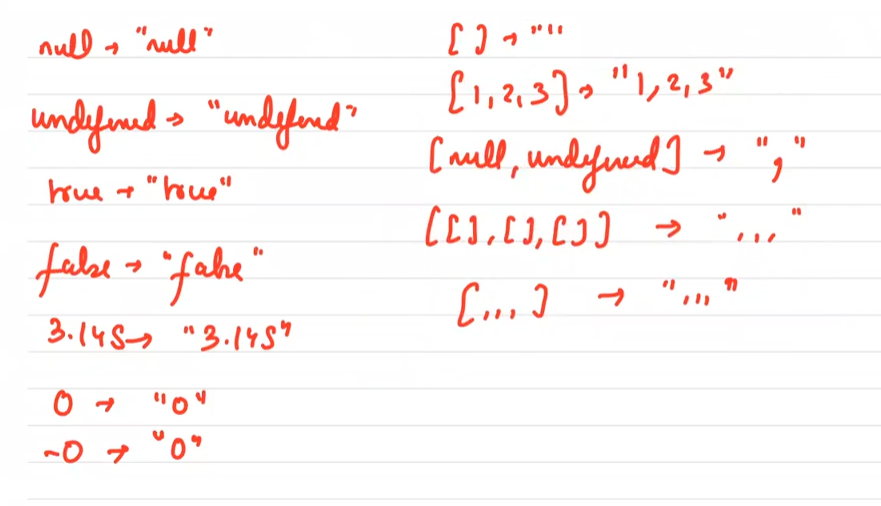 null → "null"
undefined → "undefined"
true → "true"
false → "false"
3.145 → "3.145"
0 → "0"
-0 → "0"
[] → ""
[1,2,3] → "1,2,3"
[null, undefined] → ","
[[],[],[]] → ",,,"
[,,,] → ",,,"